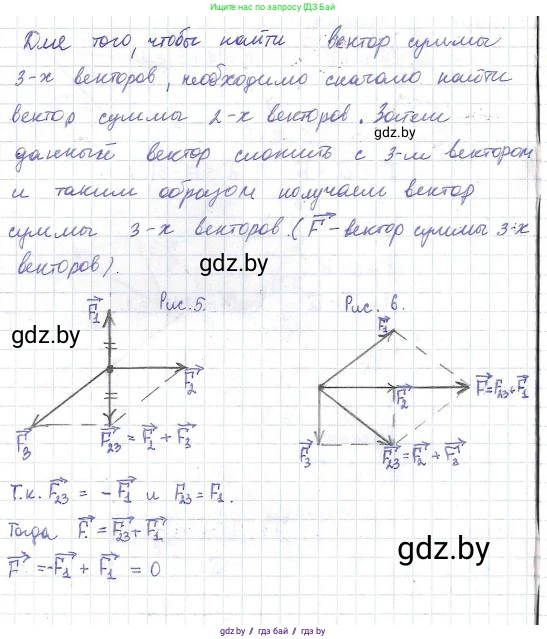 Пишите нам по запросу ГДЗ БАЙ
Для того, чтобы найти вектор суммы
3-х векторов, необходимо сначала найти
вектор суммы 2-х векторов. Затем
gdz.by
данный вектор сложить с 3-им вектором
и таким образом получаем вектор
суммы 3-х векторов. (F⃗ - вектор суммы 3-х
векторов).
gdz.by
Рис. 5. Рис. 6.
F⃗₁ F⃗₁
gdz.by
F⃗₂ F⃗₂ F⃗ = F⃗₂₃ + F⃗₁
F⃗₃ F⃗₂₃ = F⃗₂ + F⃗₃ F⃗₃ F⃗₂₃ = F⃗₂ + F⃗₃
Т.к. F⃗₂₃ = - F⃗₁ и F₂₃ = F₁.
Тогда F⃗ = F⃗₂₃ + F⃗₁
F⃗ = -F⃗₁ + F⃗₁ = 0
gdz.by
gdz.by / гдз бай / gdz.by